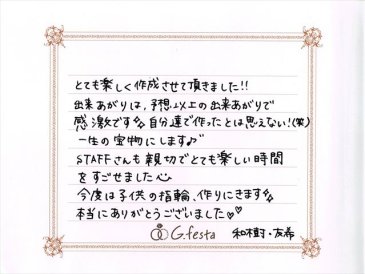 とても楽しく作成させて頂きました!!
出来あがりは、予想以上の出来あがりで
感激です 自分達で作ったとは思えない!(笑)
一生の宝物にします♪
STAFFさんも親切でとても楽しい時間
をすごせました♡
今度は子供の指輪、作りにきます
本当にありがとうございました♡♡
G.festa 和樹・友希